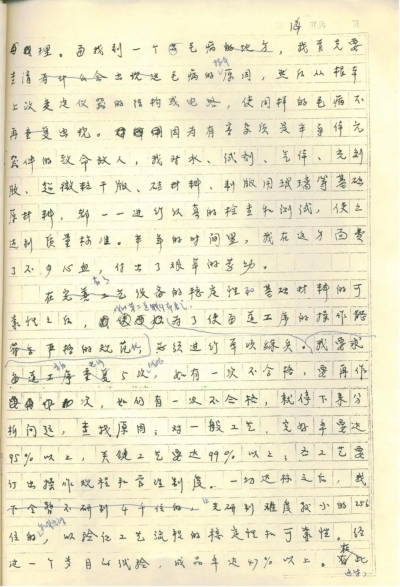 理。每找到一个毛病的地方，我首先要
查清有什么会出现这毛病的原因，然后从根本
上次要定仪器的结构或电路，使同样的毛病不
再重复出现。因为有害杂质是半导体元
器件的致命敌人，我对水、试剂、气体、光刻
胶、超微粒干版、硅材料、制版用玻璃等基础
原材料，都一一进行认真的检查和测试，使之
达到质量标准。半年的时间里，我在这方面费
了不少心血，付出了艰辛的劳动。
在完善工艺设备的稳定性和基础材料的可
靠性之后，为了使每道工序的操作都
符合严格的规范，必须进行单次练兵。我要求
每道工序重复5次，如有一次不合格，要再作
次，如仍有一次不合格，就停下来分
析问题，查找原因；对一般工艺，完好率要达
95%以上，关键工艺要达99%以上；各工艺要
订出操作规程和管理制度。一切达标之后，我
不急着研制4千位的，先研制难度较小的256
位的，以验征工艺流程的稳定性和可靠性。经
这一个多月的试验，成品率达47%以上。在此